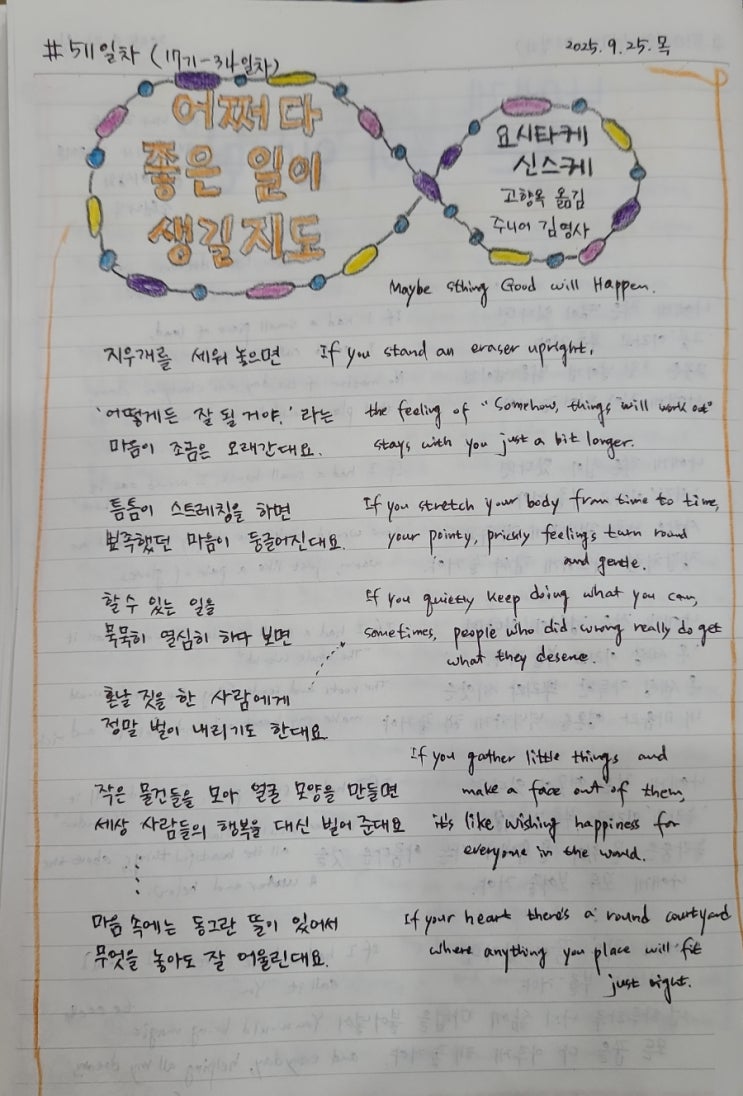 #511일차 (17기-34일차)
2025. 9. 25. 목
어쩌다
좋은 일이
생길지도
요시타케
신스케
고향옥 옮김
주니어 김영사
Maybe sthing Good will Happen.
지우개를 세워 놓으면
If you stand an eraser upright,
'어떻게든 잘 될 거야.' 라는
마음이 조금은 오래간대요.
the feeling of "Somehow, things will work out"
stays with you just a bit longer.
틈틈이 스트레칭을 하면
뾰족했던 마음이 둥글어진대요.
If you stretch your body from time to time,
your pointy, prickly feelings turn round
and gentle.
할 수 있는 일을
묵묵히 열심히 하다 보면
If you quietly keep doing what you can,
sometimes, people who did wrong really do get
what they deserve.
혼날 짓을 한 사람에게
정말 벌이 내리기도 한대요.
작은 물건들을 모아 얼굴 모양을 만들면
세상 사람들의 행복을 대신 빌어 준대요
If you gather little things and
make a face out of them,
it's like wishing happiness for
everyone in the world.
마음 속에는 동그란 뜰이 있어서
무엇을 놓아도 잘 어울린대요.
If your heart there's a round courtyard
where anything you place will fit
just right.